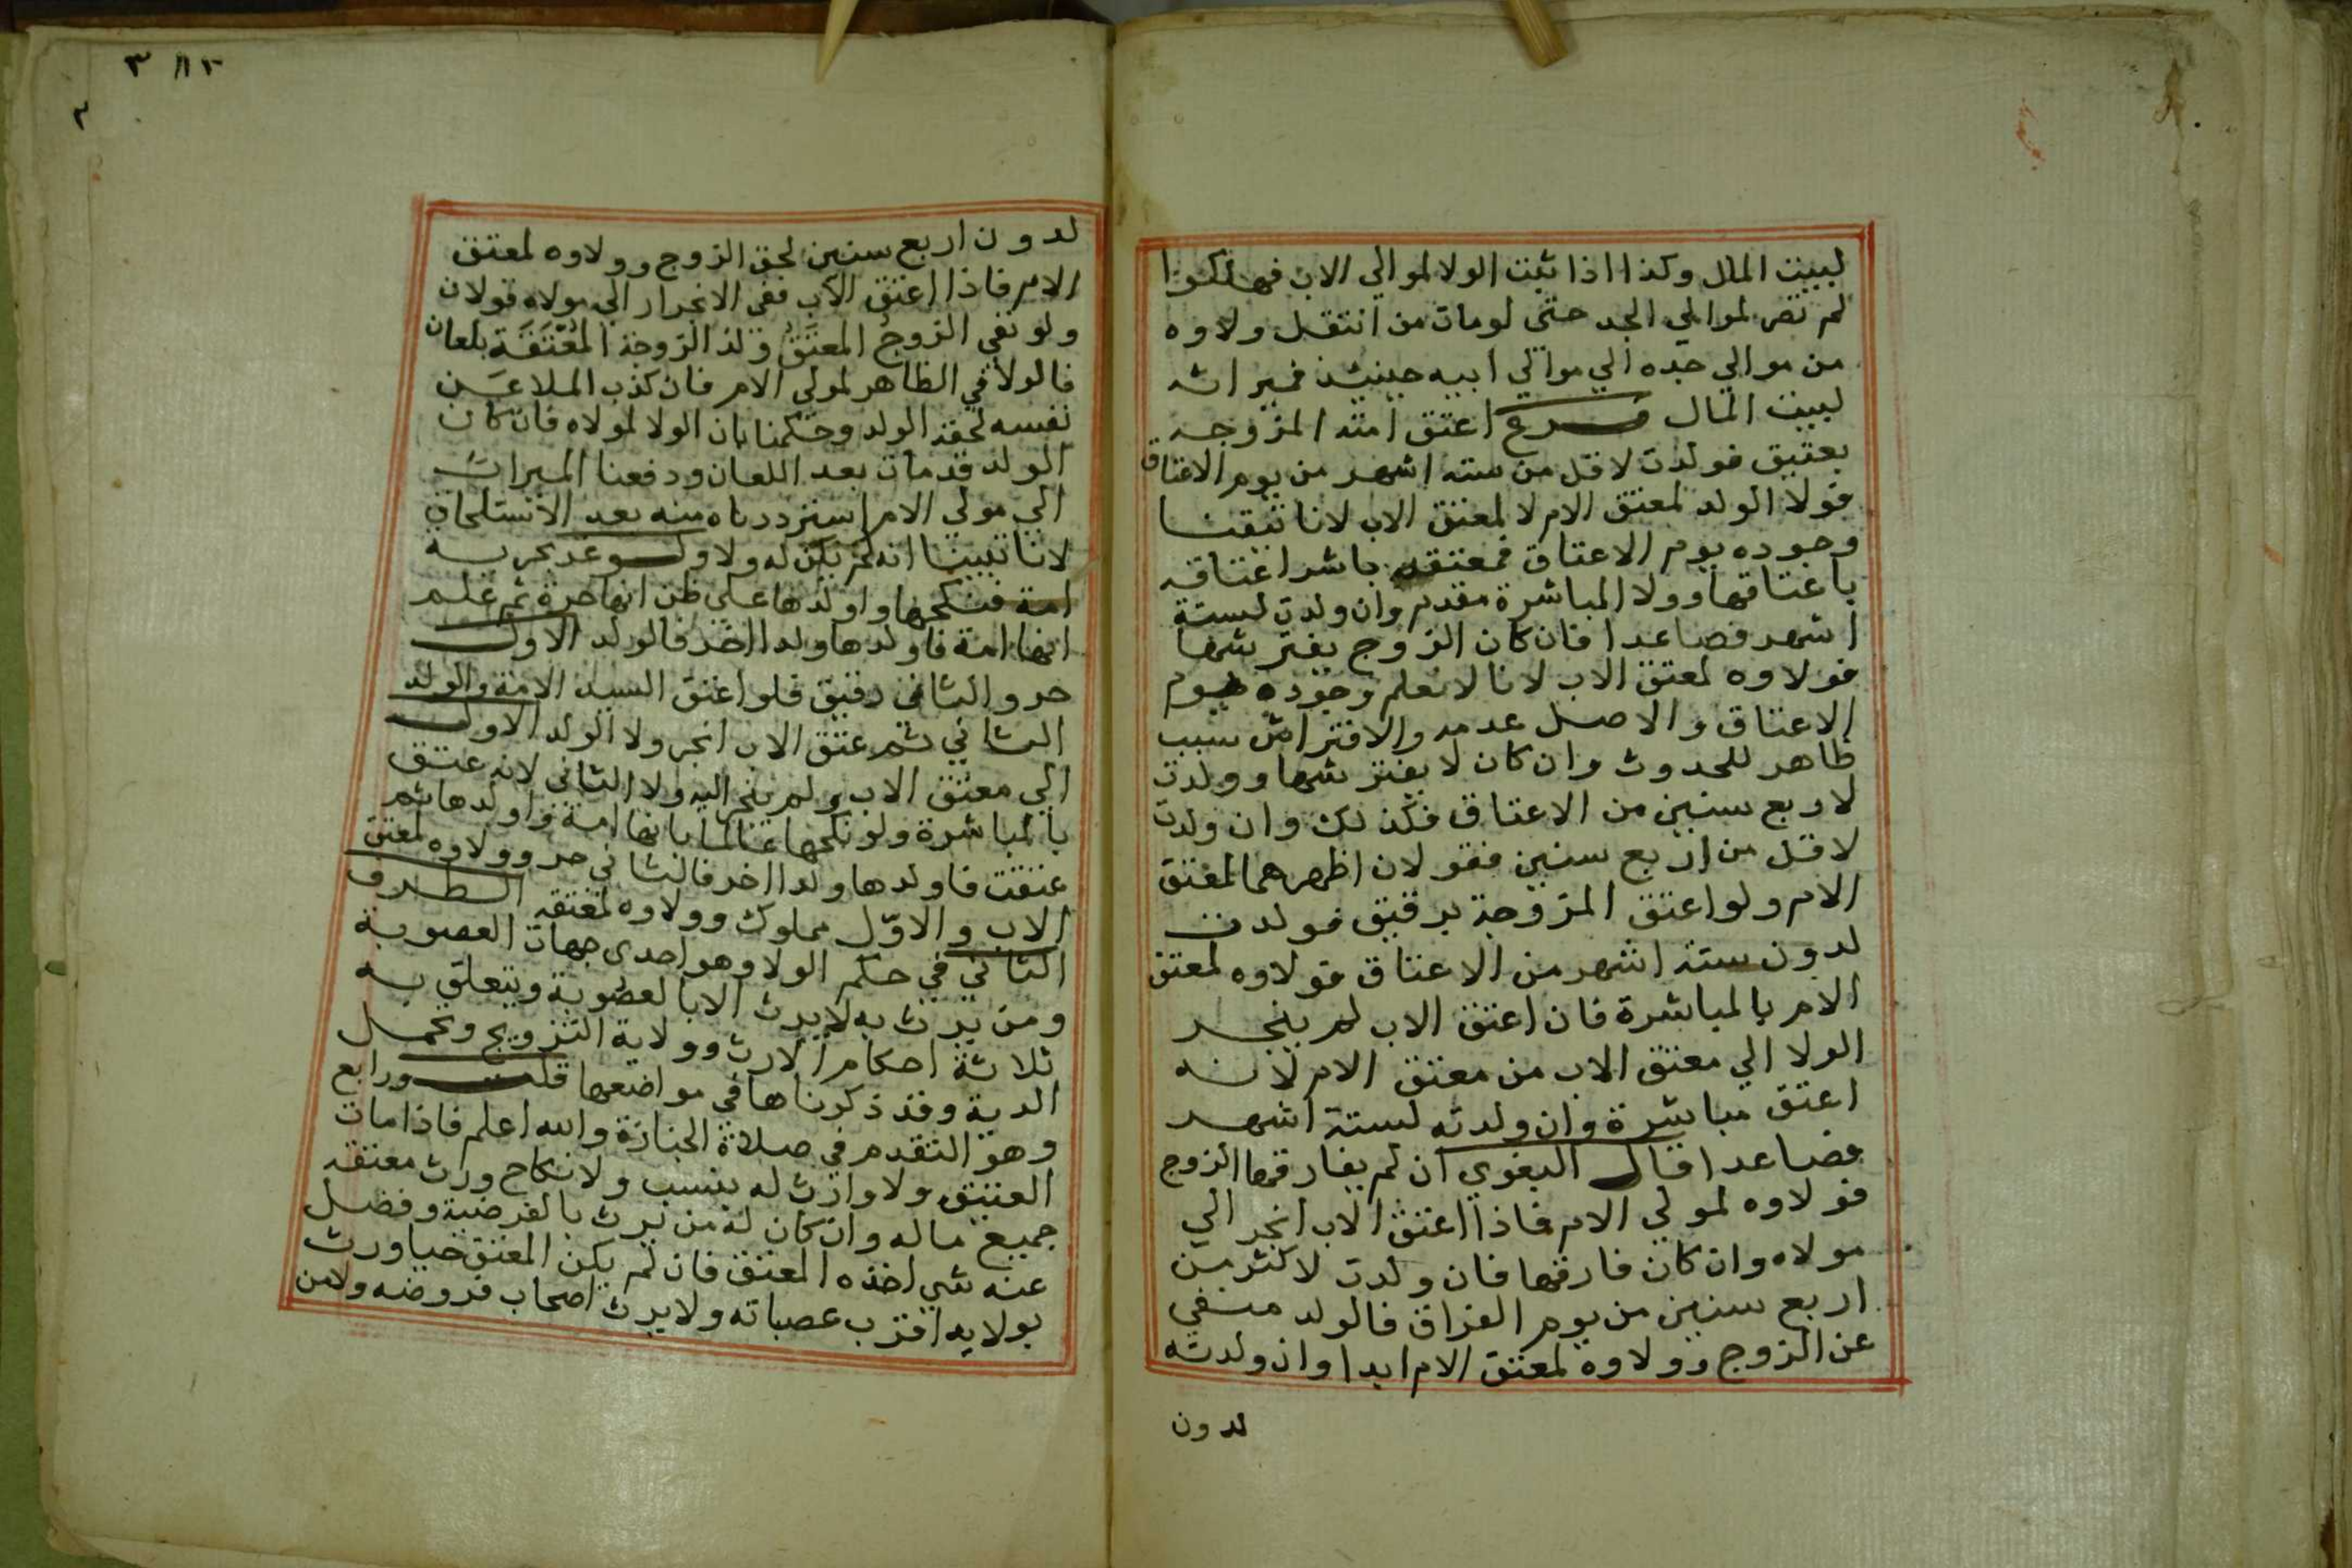 لبيت المال وكذا اذا ثبت الولا لموالي الاب فهلكوا
لم تصر لموالي الجد حتى لو مات من انتقل ولاوه
من موالي جده الي موالي ابيه حينئذ فميراثه
لبيت المال فرع اعتق امته المزوجه
بعتيق فولدت لاقل من سته اشهر من يوم الاعتاق
فولا الولد لمعتق الام لا لمعتق الاب لانا تيقنا
وجوده يوم الاعتاق فمعتقه باشر اعتاقه
باعتاقها وولا المباشرة مقدم وان ولدت لستة
اشهر فصاعدا فان كان الزوج يفترشها
فولاوه لمعتق الاب لانا لا نعلم وجوده يوم
الاعتاق والاصل عدمه والافتراش سبب
ظاهر للحدوث وان كان لا يفترشها وولدت
لاربع سنين من الاعتاق فكذلك وان ولدت
لاقل من اربع سنين فقولان اظهرهما لمعتق
الام ولو اعتق المزوجة برقيق فولدت
لدون ستة اشهر من الاعتاق فولاوه لمعتق
الام بالمباشرة فان اعتق الاب لم ينجر
الولا الي معتق الاب من معتق الام لانه
اعتق مباشرة وان ولدته لستة اشهر
فصاعدا قال البغوي ان لم يفارقها الزوج
فولاوه لمولي الام فاذا اعتق الاب انجر الي
مولاه وان كان فارقها فان ولدت لاكثر من
اربع سنين من يوم الفراق فالولد منفي
عن الزوج وولاوه لمعتق الام ابدا وان ولدته
لدون
٣
لدون اربع سنين لحق الزوج وولاوه لمعتق
الام فاذا اعتق الاب ففي الانجرار الي مولاه قولان
ولو نفي الزوج المعتق ولد الزوجة المعتقة بلعان
فالولا في الظاهر لمولي الام فان كذب الملاعن
نفسه لحقه الولد وحكمنا بان الولا لمولاه فان كان
الولد قد مات بعد اللعان ودفعنا الميراث
الي مولي الام استرددناه منه بعد الاستلحاق
لانا تبينا انه لم يكن له ولا ولو غر بحرية
امة فنكحها واولدها علي ظن انها حرة ثم علم
انها امة فاولدها ولدا اخر فالولد الاول
حر والثاني رقيق فلو اعتق السيد الامة والولد
الثاني ثم عتق الاب انجر ولا الولد الاول
الي معتق الاب ولم ينجر اليه ولا الثاني لانه عتق
بالمباشرة ولو نكحها عالما بانها امة واولدها ثم
عتقت فاولدها ولدا اخر فالثاني حر وولاوه لمعتق
الاب والاول مملوك وولاوه لمعتقه الطرف
الثاني في حكم الولا وهو احدى جهات العصوبة
ومن يرث به لا يرث الا بالعصوبة ويتعلق به
ثلاثة احكام الارث وولاية التزويج وتحمل
الدية وقد ذكرناها في مواضعها قلت ورابع
وهو التقدم في صلاة الجنازة والله اعلم فاذا مات
العتيق ولا وارث له بنسب ولا نكاح ورث معتقه
جميع ماله وان كان له من يرث بالفرضية وفضل
عنه شي اخذه المعتق فان لم يكن المعتق حيا ورث
بولايه اقرب عصباته ولا يرث اصحاب فروضه ولا من